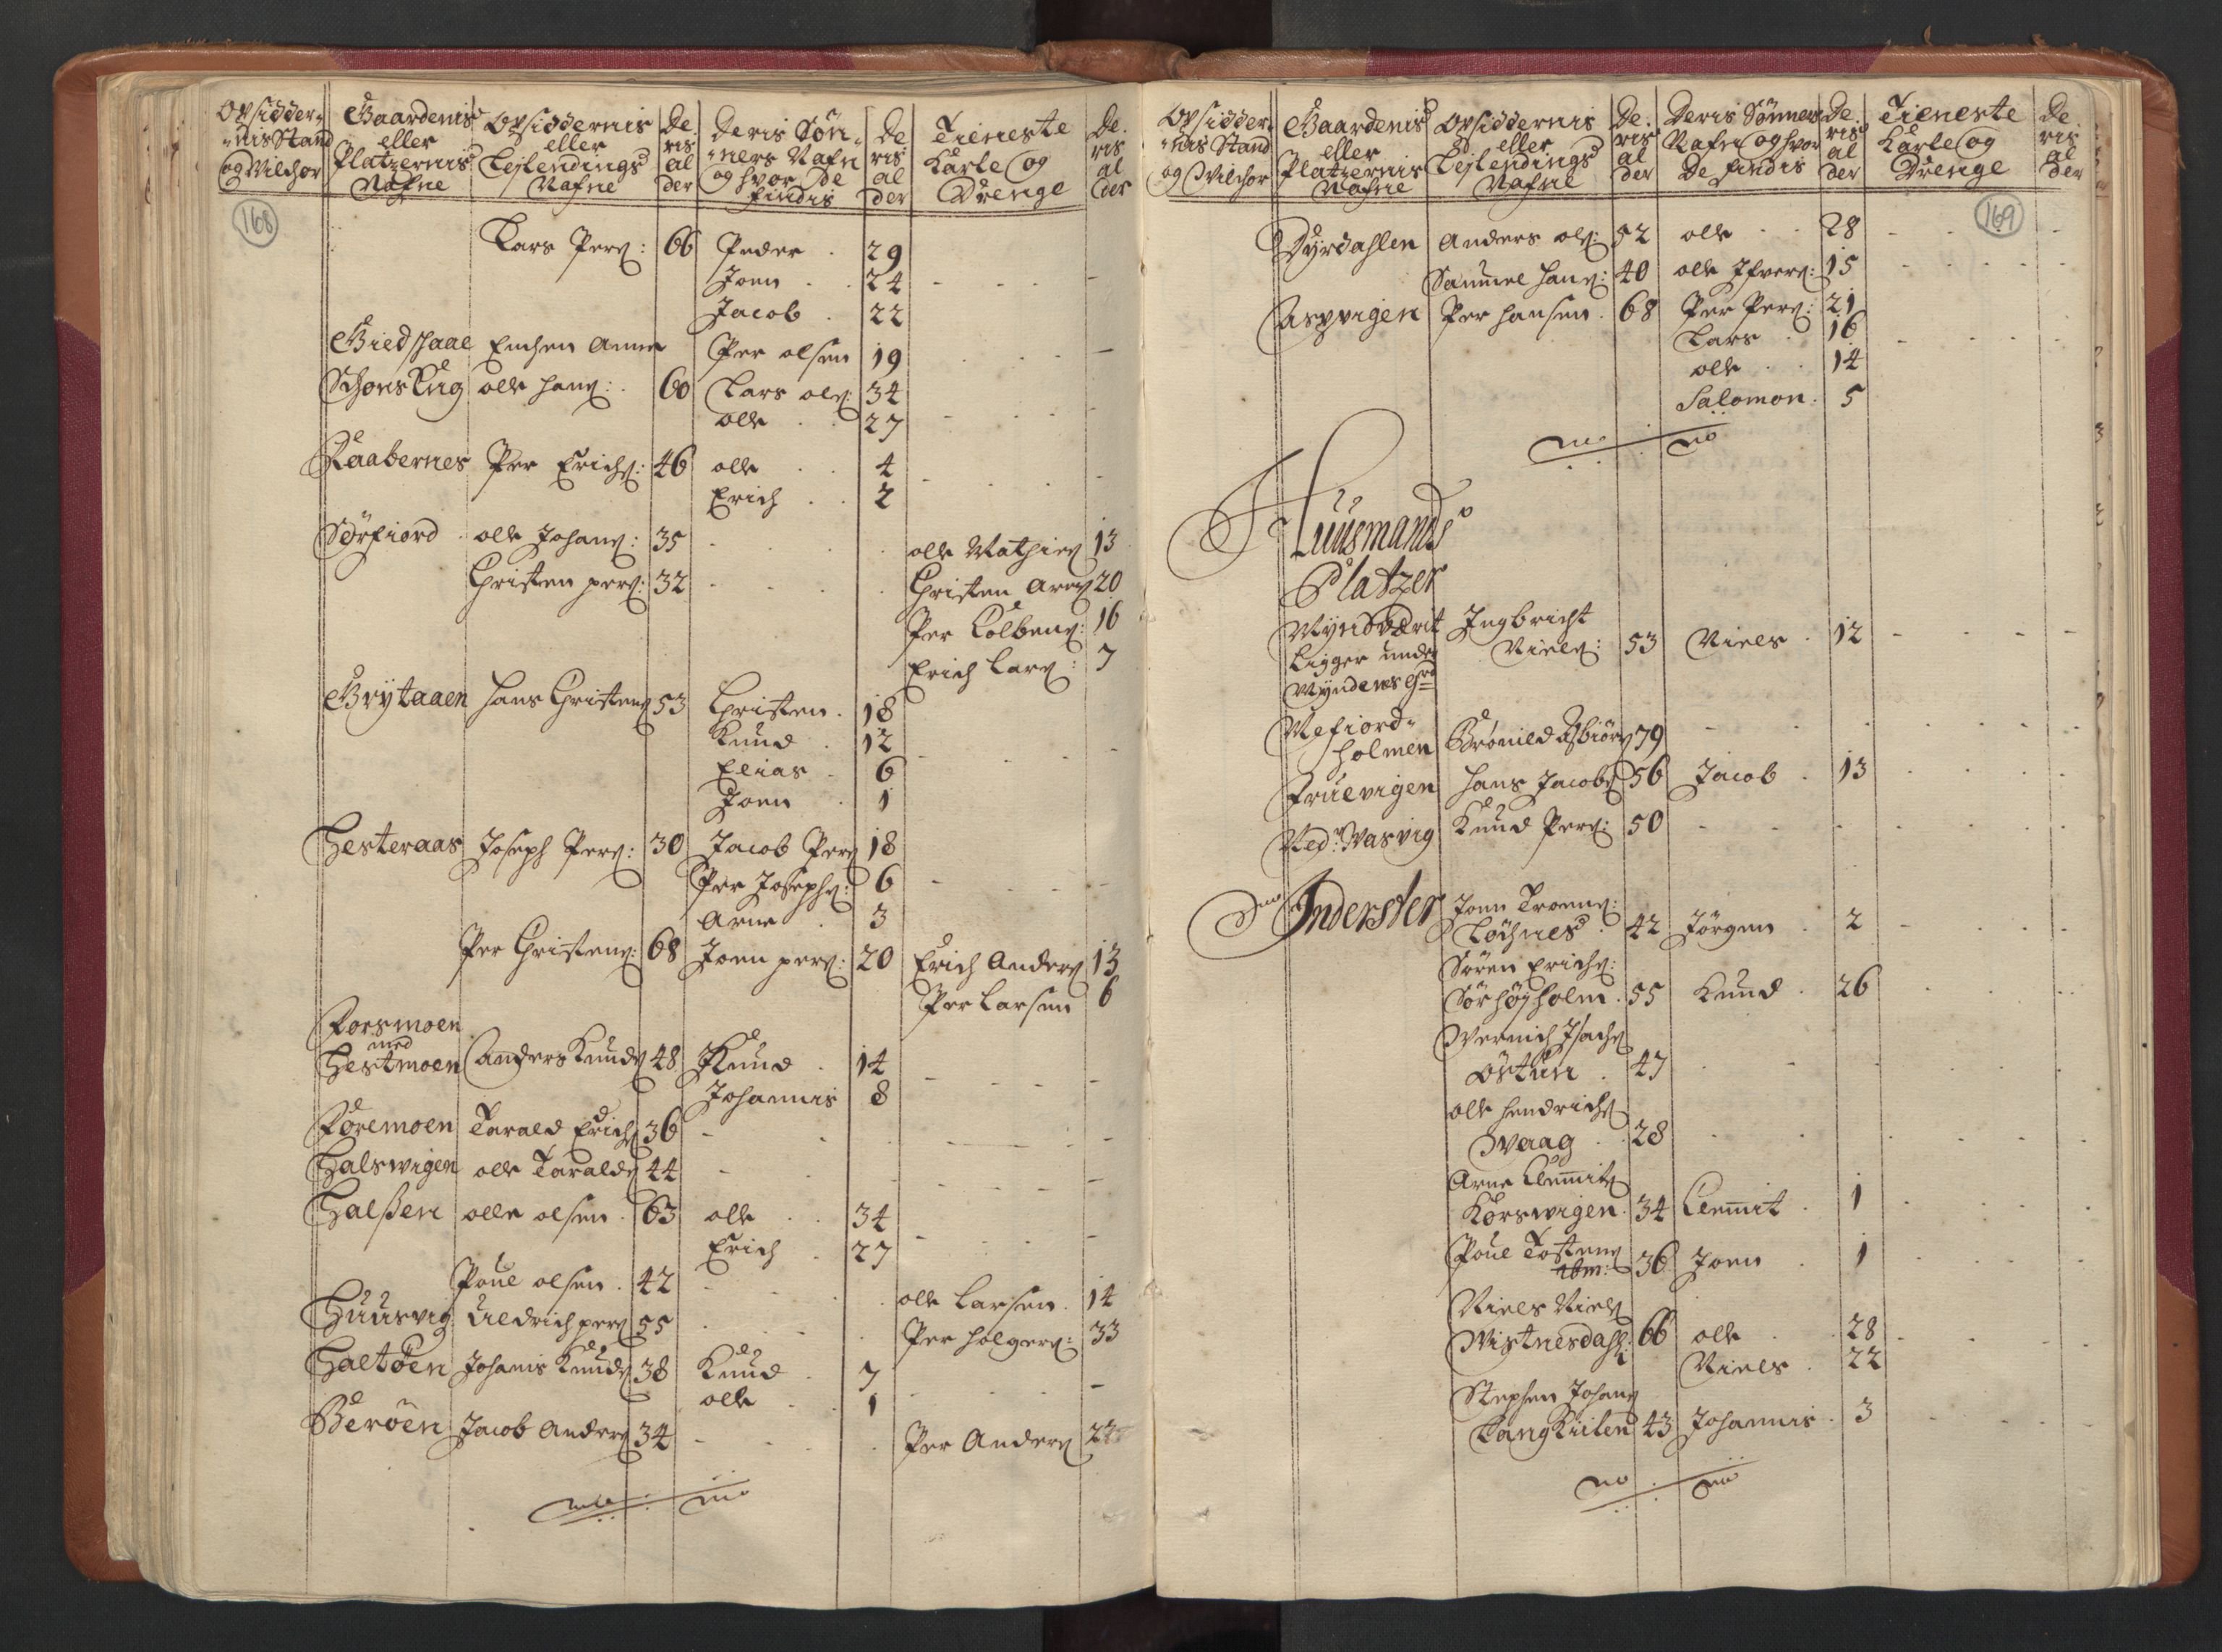 Opsidder-
nis Stand
og Vilchor
Gaardenis
eller
Platzernis
Nafne
Opsiddernis
eller
Lejlendings
Nafne
De
ris
al
der
Deris Søn-
ners Nafn
og hvor De
findis
De
ris
al
der
Tieneste
Karle og
Drenge
De
ris
al
der
168
Lars Pers: 66 Peder 29
Joen 24
Jacob 22
Giedskaal Enchen Anne Per olsen 19
olle Hans: 60 Lars ols: 34
olle 27
Raabernes Per Erichs: 46 olle 4
Erich 2
Sørfiord olle Johans: 35 olle Mathies 13
Christen pers: 32 Christen Ars 20
Per Colbens: 16
Erich Lars: 7
Brÿtaaen Hans Christens 53 Christen 18
Knud 12
Elias 6
Joen 1
Hesteraas Joseph Pers: 30 Jacob Pers 18
Per Josephs: 6
Arne 3
Per Christens: 68 Joen pers: 20 Erich Anders 13
Per Larsen 6
Forsmoen
med
Hestmoen Anders Knuds 48 Knud 14
Johannis 8
Føremoen Tarald Erichs 36
Halswigen olle Taralds 44
Halßen olle olsen 63 olle 34
Erich 27
Poul olsen 42 olle Larsen 14
Huusvig Uldrich pers 55 Per Holgers: 33
Haltøen Johanis Knuds 38 Knud 7
olle 1
Berøen Jacob Anders 34 Per Anders
Opsidder-
nis Stand
og Vilchor
Gaardenis
eller
Platzernis
Nafne
Opsiddernis
eller
Lejlendings
Nafne
De
ris
al
der
Deris Sønners
Nafn og hvor
De findis
De
ris
al
der
Tieneste
Karle og
Drenge
De
ris
al
der
169
Dÿrdahlen Anders ols: 52 olle 28
Sammel Hans: 40 olle Ifvers: 15
Aspvigen Per Hansen 68 Per Pers: 21
Lars 16
olle 14
Salomon 5
Huusmands
Platzer
Mynsværit Ingbricht
Ligger under Niels: 53 Niels 12
Myndenes Grd
Vefiord-
holmen Bronild Asbiørs 79
Fruevigen Hans Jacobs 56 Jacob 13
Ved: Wasvig Knud Pers: 50
Inderster Joen Troens:
Løchnes 42 Jørgen 2
Søren Erichs:
Sørhøyholm 55 Knud 26
Wernich Isachs
Østun 47
olle Hendrichs
Waag 28
Arne Clemits
Korswigen 34 Clemit 1
Poul Tostens
36 Joen 1
Niels Niels
Wistnesdahl: 66 olle 28
Niels 22
Stephen Johans
Langskiiten 43 Johannis 3